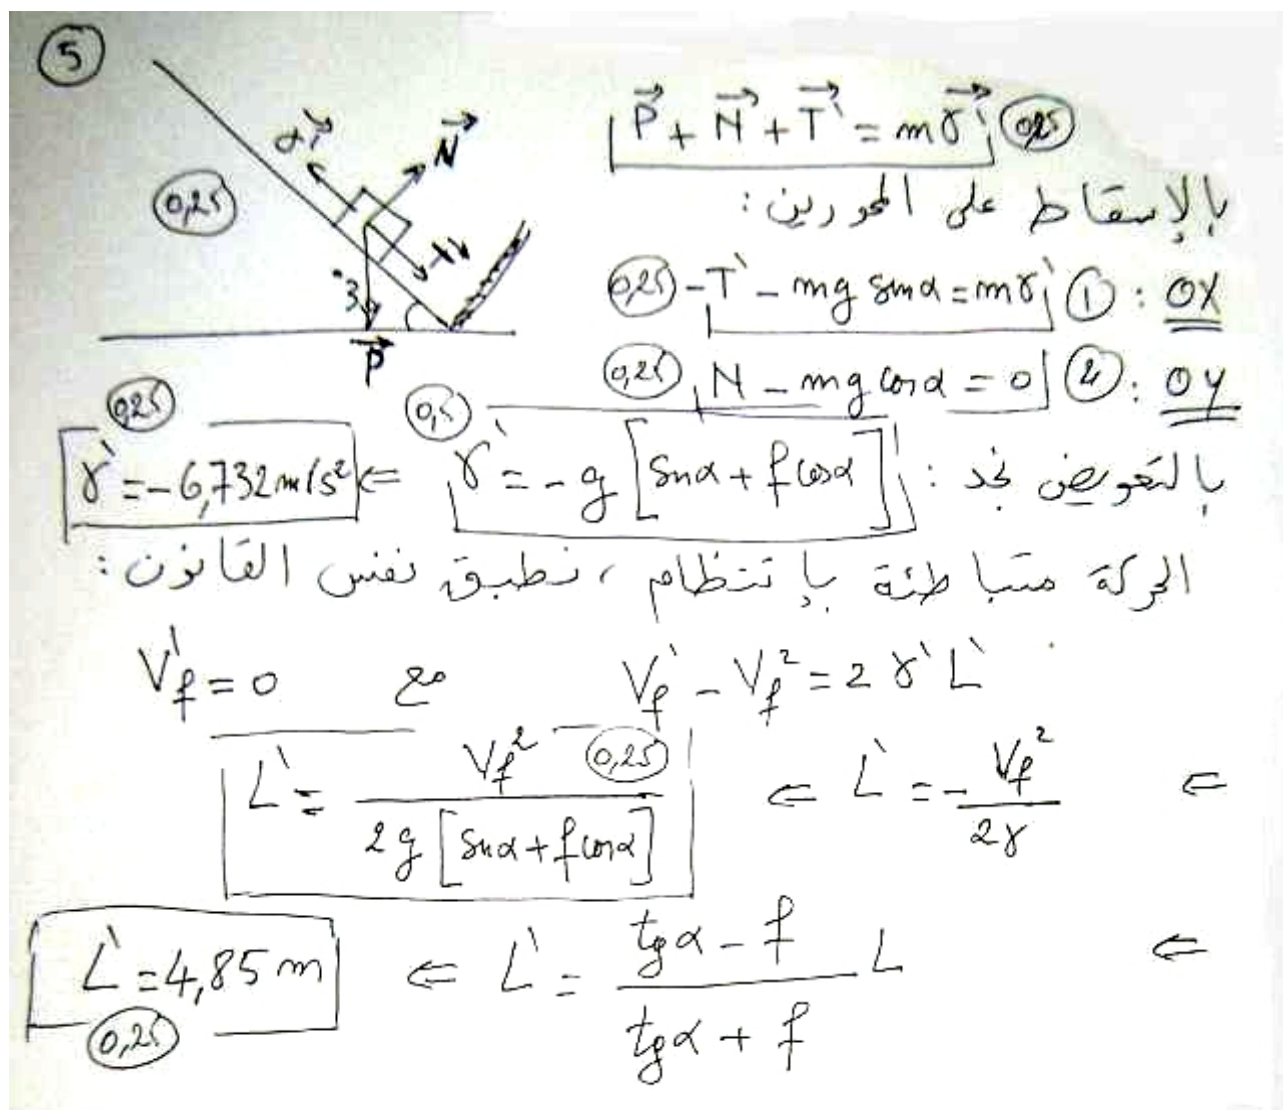 5
N
0,25
P
P + N + T' = mγ' 0,25
بالإسقاط على المحورين :
OX : ① -T' - mg sinα = mγ' 0,25
OY : ② N - mg cosα = 0 0,25
بالتعويض نجد : γ' = -g [sinα + f cosα] 0,5 ⇐ γ' = -6,732 m/s² 0,25
الحركة متباطئة بإنتظام ، نطبق نفس القانون :
V'f - Vf² = 2 γ' L' مع V'f = 0
⇐ L' = - Vf² / 2γ ⇐ L' = Vf² / 2g [sinα + f cosα] 0,25
⇐ L' = tgα - f / tgα + f L ⇐ L' = 4,85 m
0,25